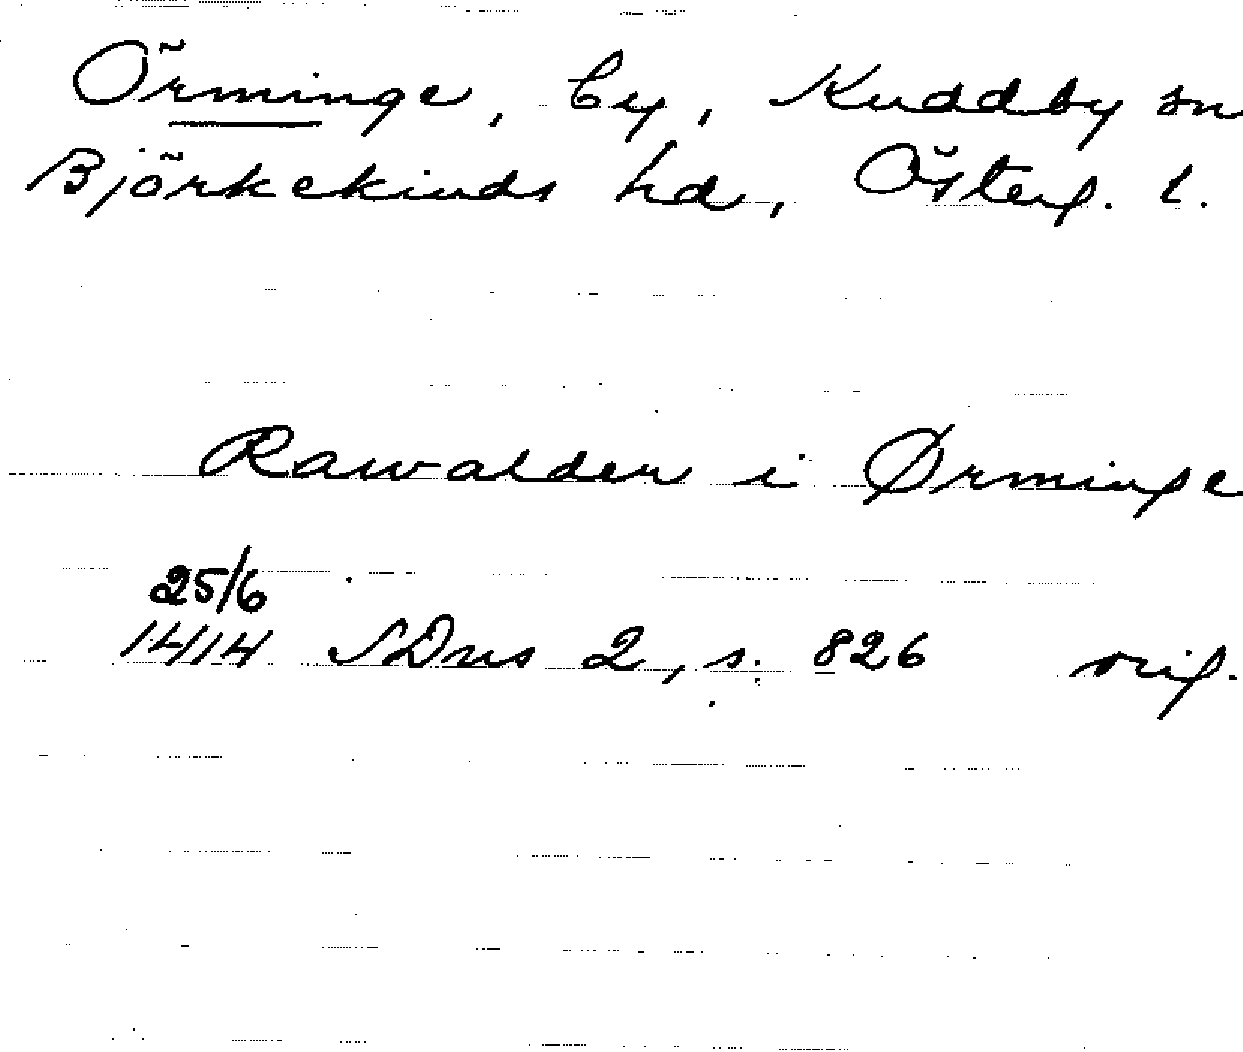 Örminge, by, Kuddby sn
Björkekinds hd, Österg. l.
Rawalder i Ørminge
25/6
1414 SDns 2, s. 826 orig.